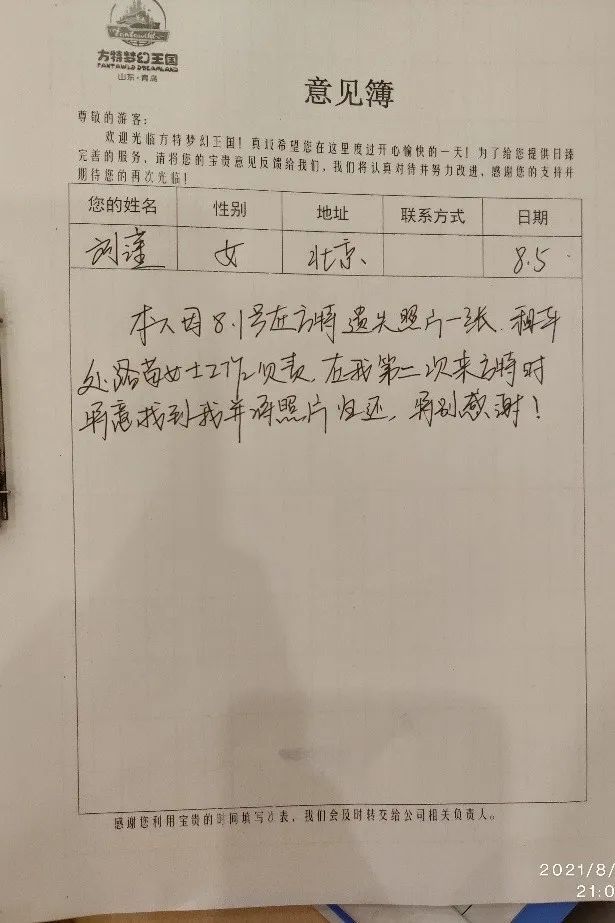 Fantawild
方特梦幻王国
FANTAWILD DREAMLAND
山东·青岛
意见簿
尊敬的游客：
欢迎光临方特梦幻王国！真诚希望您在这里度过开心愉快的一天！为了给您提供日臻
完善的服务，请将您的宝贵意见反馈给我们，我们将认真对待并努力改进，感谢您的支持并
期待您的再次光临！
您的姓名 性别 地址 联系方式 日期
刘 女 北京 8.5
本人因8.1号在方特遗失照片一张，租车
处路苗女士工作负责，在我第二次来方特时
特意找到我并将照片归还，特别感谢！
感谢您利用宝贵的时间填写此表，我们会及时转交给公司相关负责人。
2021/8/
21:0